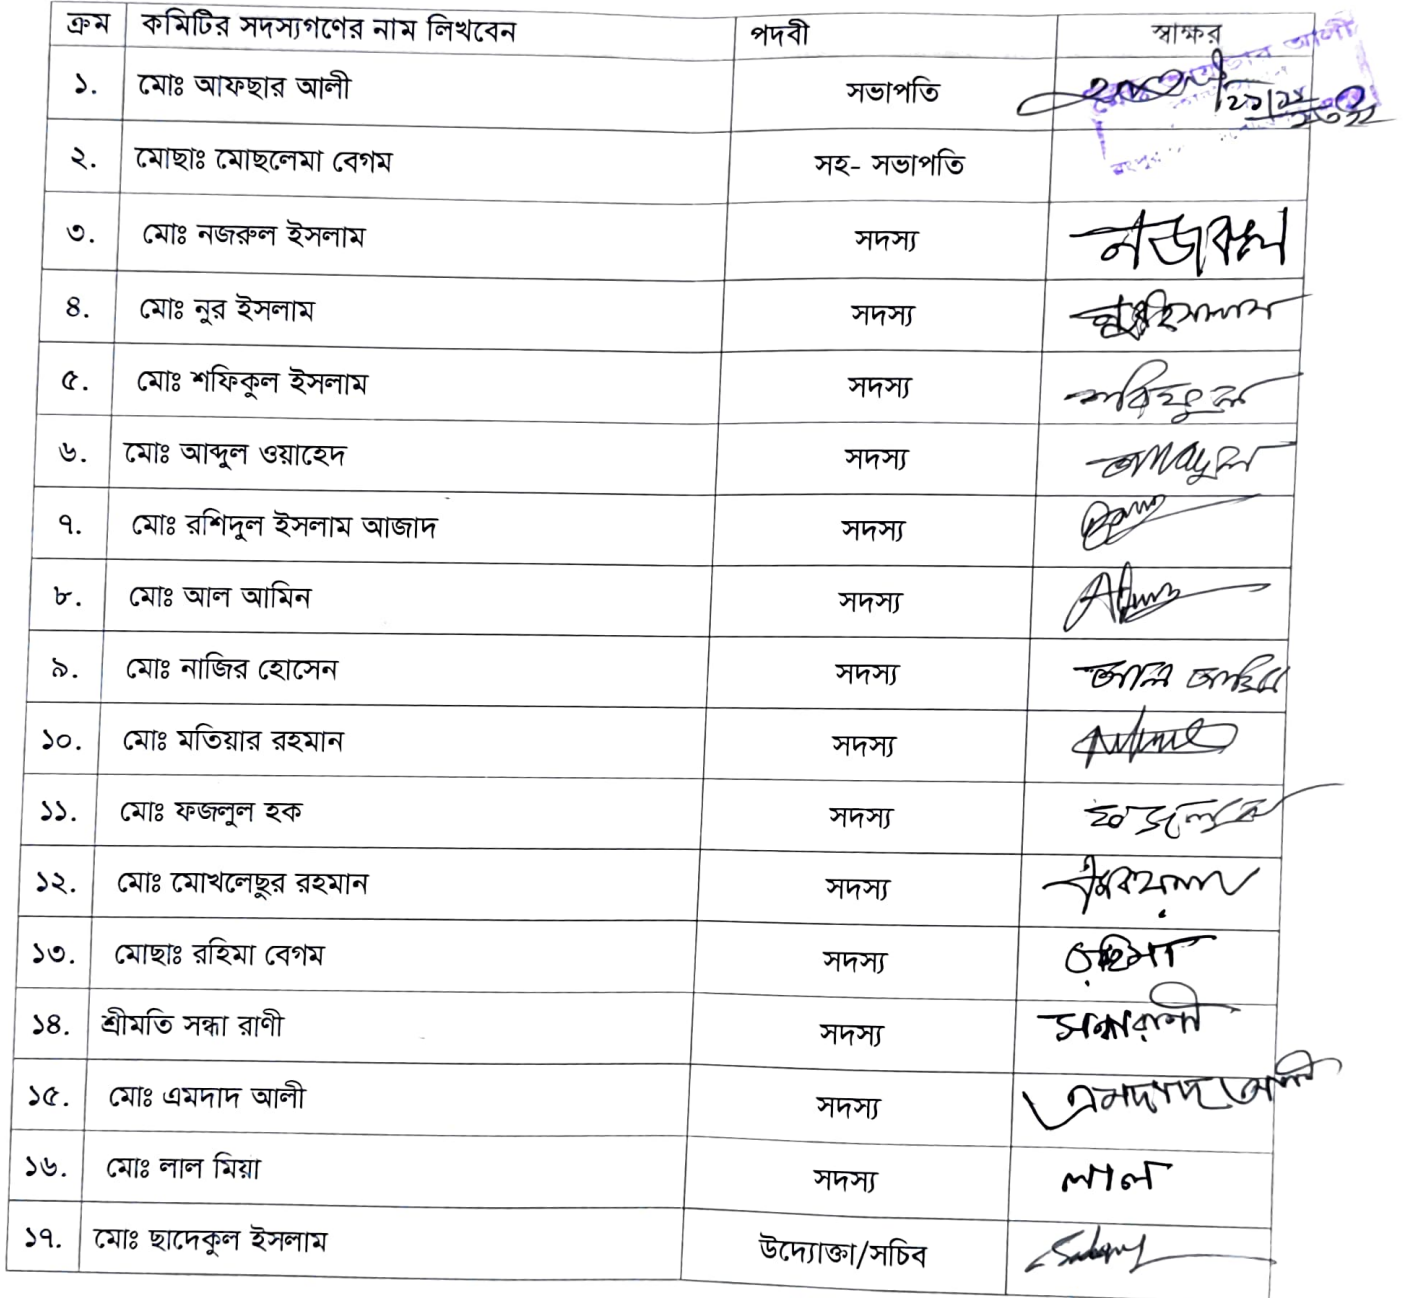 ক্রম কমিটির সদস্যগণের নাম লিখবেন পদবী স্বাক্ষর
১. মোঃ আফছার আলী সভাপতি
২. মোছাঃ মোছলেমা বেগম সহ- সভাপতি
৩. মোঃ নজরুল ইসলাম সদস্য নজরুল
৪. মোঃ নুর ইসলাম সদস্য নুর ইসলাম
৫. মোঃ শফিকুল ইসলাম সদস্য
৬. মোঃ আব্দুল ওয়াহেদ সদস্য
৭. মোঃ রশিদুল ইসলাম আজাদ সদস্য
৮. মোঃ আল আমিন সদস্য
৯. মোঃ নাজির হোসেন সদস্য
১০. মোঃ মতিয়ার রহমান সদস্য
১১. মোঃ ফজলুল হক সদস্য
১২. মোঃ মোখলেছুর রহমান সদস্য
১৩. মোছাঃ রহিমা বেগম সদস্য রহিমা
১৪. শ্রীমতি সন্ধা রাণী সদস্য সন্ধারাণী
১৫. মোঃ এমদাদ আলী সদস্য এমদাদ আলী
১৬. মোঃ লাল মিয়া সদস্য লাল
১৭. মোঃ ছাদেকুল ইসলাম উদ্যোক্তা/সচিব